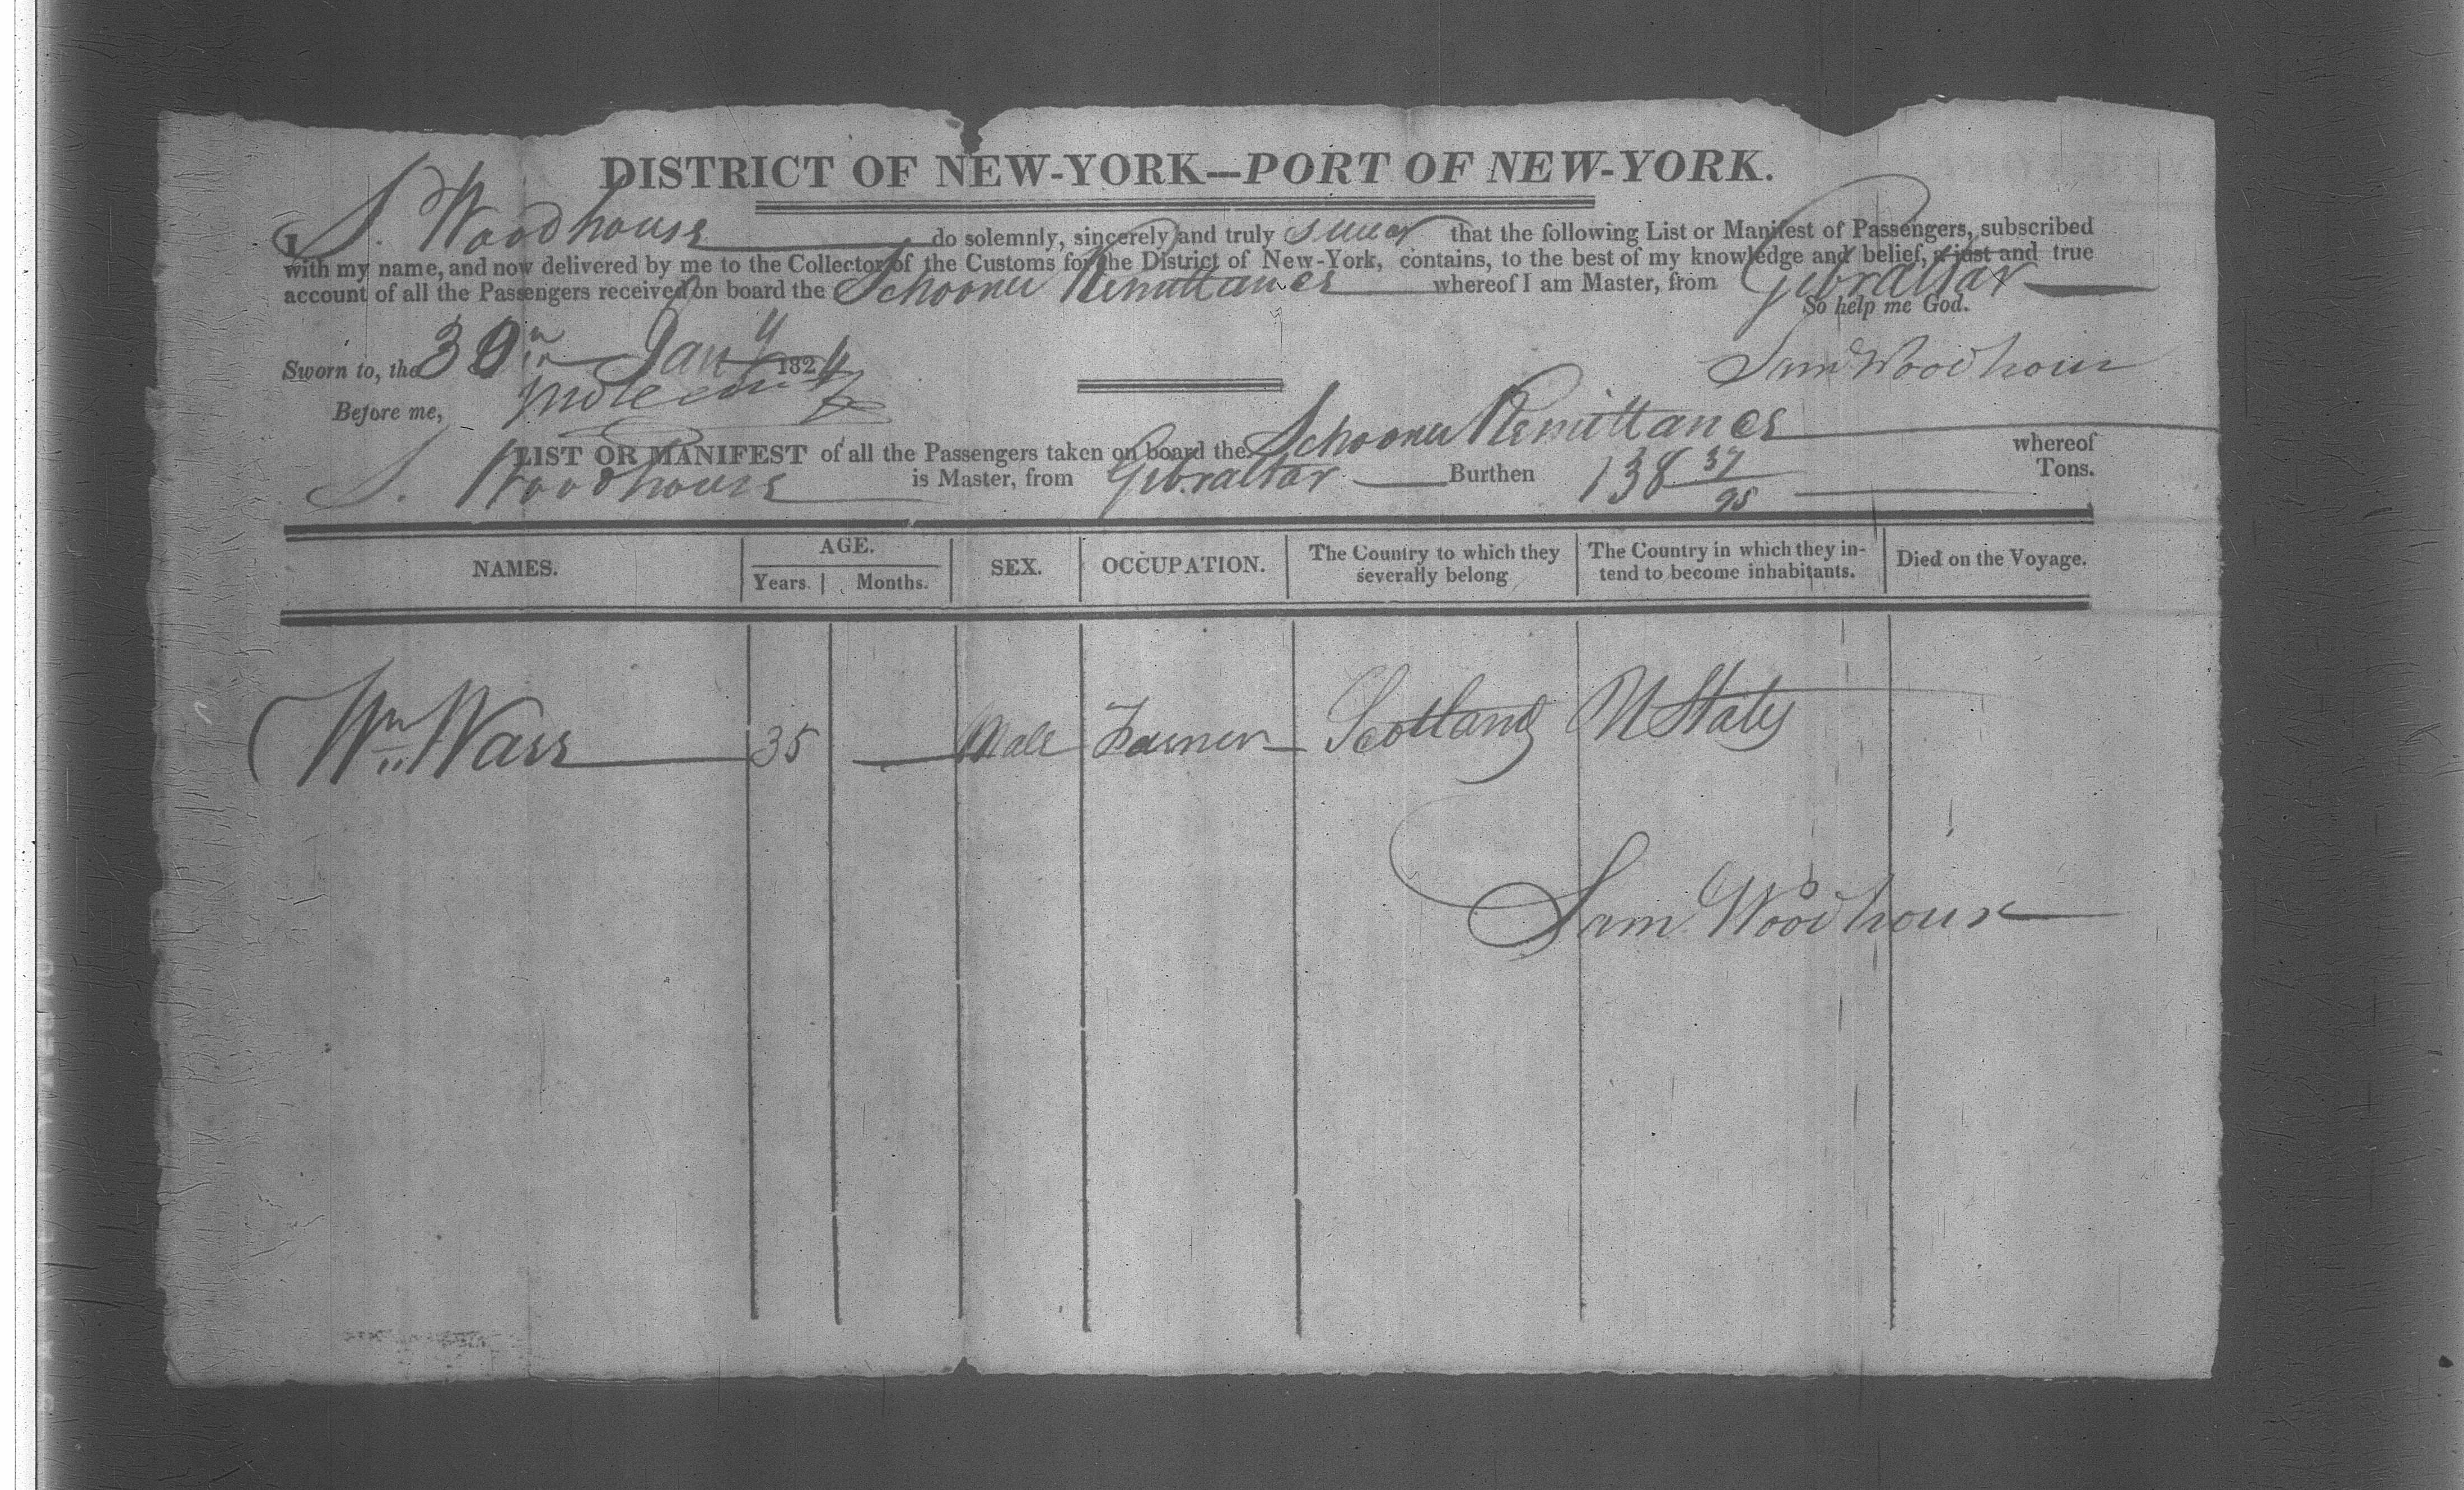 DISTRICT OF NEW-YORK—PORT OF NEW-YORK.
I S. Woodhouse do solemnly, sincerely and truly swear that the following List or Manifest of Passengers, subscribed
with my name, and now delivered by me to the Collector of the Customs for the District of New-York, contains, to the best of my knowledge and belief, a just and true
account of all the Passengers received on board the Schooner Remittance whereof I am Master, from Gibraltar
So help me God.
Sworn to, the 30th Jany 1824
Sam Woodhouse
Before me,
LIST OR MANIFEST of all the Passengers taken on board the Schooner Remittance whereof
S. Woodhouse is Master, from Gibraltar Burthen 138 37/95 Tons.
NAMES. AGE. Years. Months. SEX. OCCUPATION. The Country to which they severally belong The Country in which they in-tend to become inhabitants. Died on the Voyage.
Wm Wass 35 Male Farmer Scotland U States
Sam Woodhouse